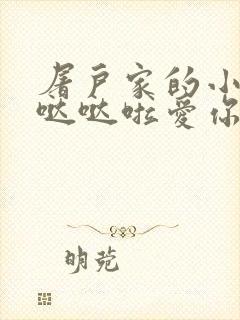 屠户家的小
哒哒啦爱你
明菀